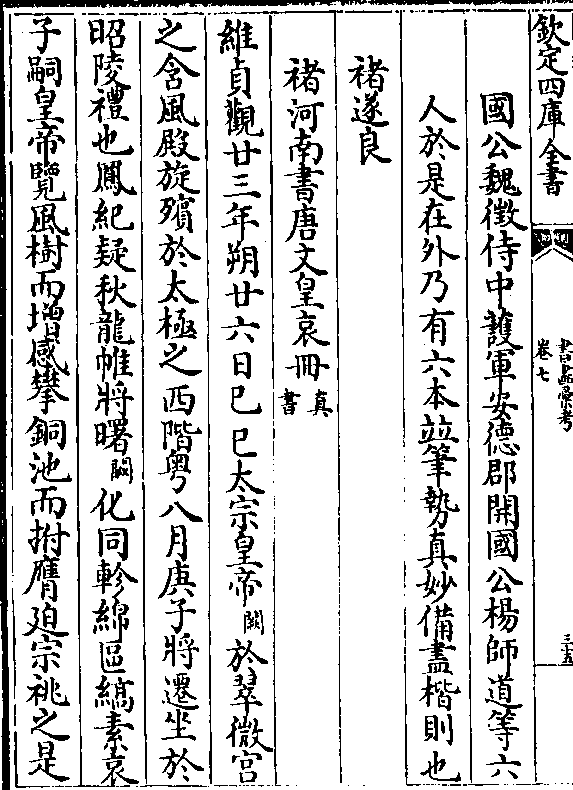 欽定四庫全書
書畵彙考
卷七
三十五
國公魏徵侍中護軍安德郡開國公楊師道等六
人於是在外乃有六本竝筆勢真妙備盡楷則也
褚遂良
褚河南書唐文皇哀冊真書
維貞觀廿三年朔廿六日己巳太宗皇帝闕於翠微宮
之含風殿旋殯於太極之西階粤八月庚子將遷坐於
昭陵禮也鳳紀疑秋龍帷將曙闕化同軫綿區縞素哀
子嗣皇帝覽風樹而增感攀銅池而拊膺廹宗祧之是